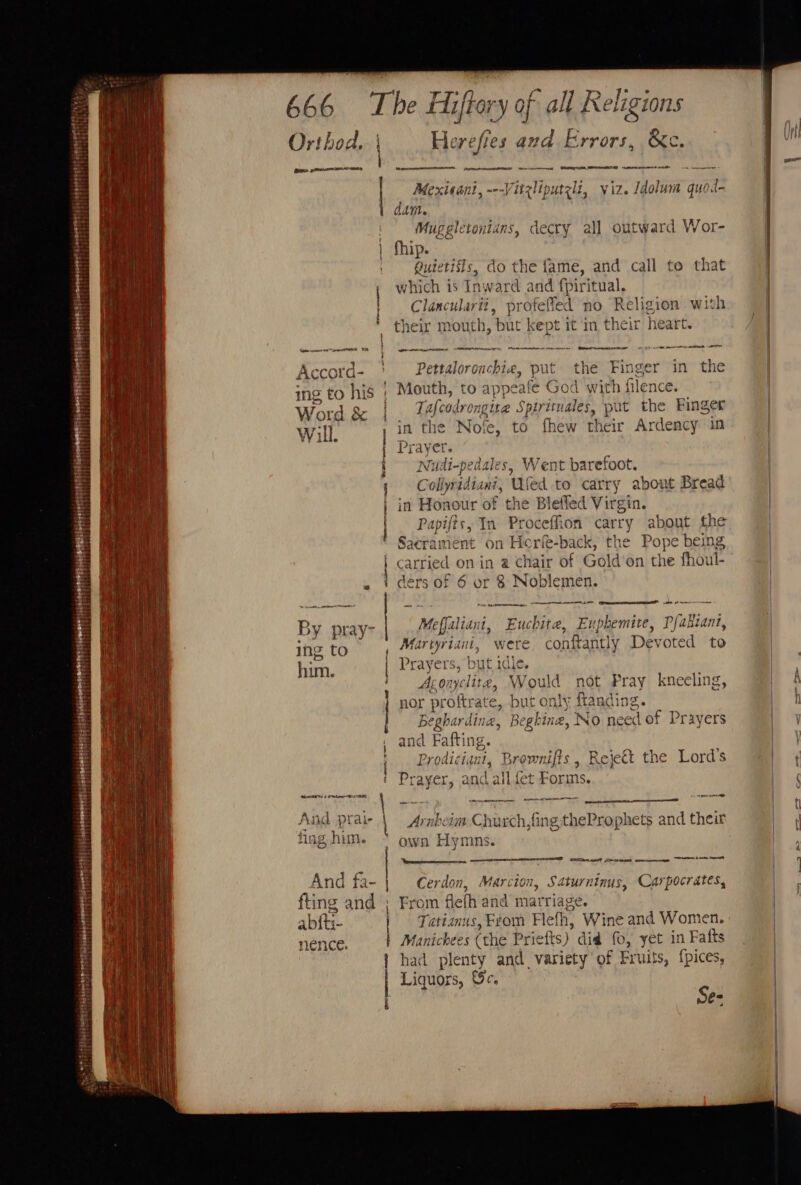 666 The Hiſtory of all Religions
Orthod. Hereſies and Errors, &c.
Mexicani, ---Vitzliputzli, viz. Idolum quod-
dam.
Muggletonians, decry all outward Wor-
ſhip.
Quietiſts, do the ſame, and call to that
which is Inward and ſpiritual.
Clancularii, profeſſed no Religion with
their mouth, but kept it in their heart.
Accord-
ing to his
Word &
Will.
Pettaloronchiæ, put the Finger in the
Mouth, to appeaſe God with ſilence.
Taſcodrongitæ Spirituales, put the Finger
in the Noſe, to ſhew their Ardency in
Prayer.
Nudi-pedales, Went barefoot.
Collyridiani, Uſed to carry about Bread
in Honour of the Bleſſed Virgin.
Papiſts, In Proceſſion carry about the
Sacrament on Horſe-back, the Pope being
carried on in a chair of Gold on the ſhoul-
ders of 6 or 8 Noblemen.
By pray-
ing to
him.
Meſſaliani, Euchitæ, Euphemitæ, Pſalliani,
Martyriani, were conſtantly Devoted to
Prayers, but idle.
Agonyclitæ, Would not Pray kneeling,
nor proſtrate, but only ſtanding.
Beghardinæ, Beghinæ, No need of Prayers
and Faſting.
Prodiciani, Browniſts, Reject the Lord's
Prayer, and all ſet Forms.
And prai-
ſing him.
Arnheim Church, ſing theProphets and their
own Hymns.
And fa-
ſting and
abſti-
nence.
Cerdon, Marcion, Saturninus, Carpocrates,
From fleſh and marriage.
Tatianus, From Fleſh, Wine and Women.
Manichees (the Prieſts) did ſo, yet in Faſts
had plenty and variety of Fruits, ſpices,
Liquors, &c.
Se-